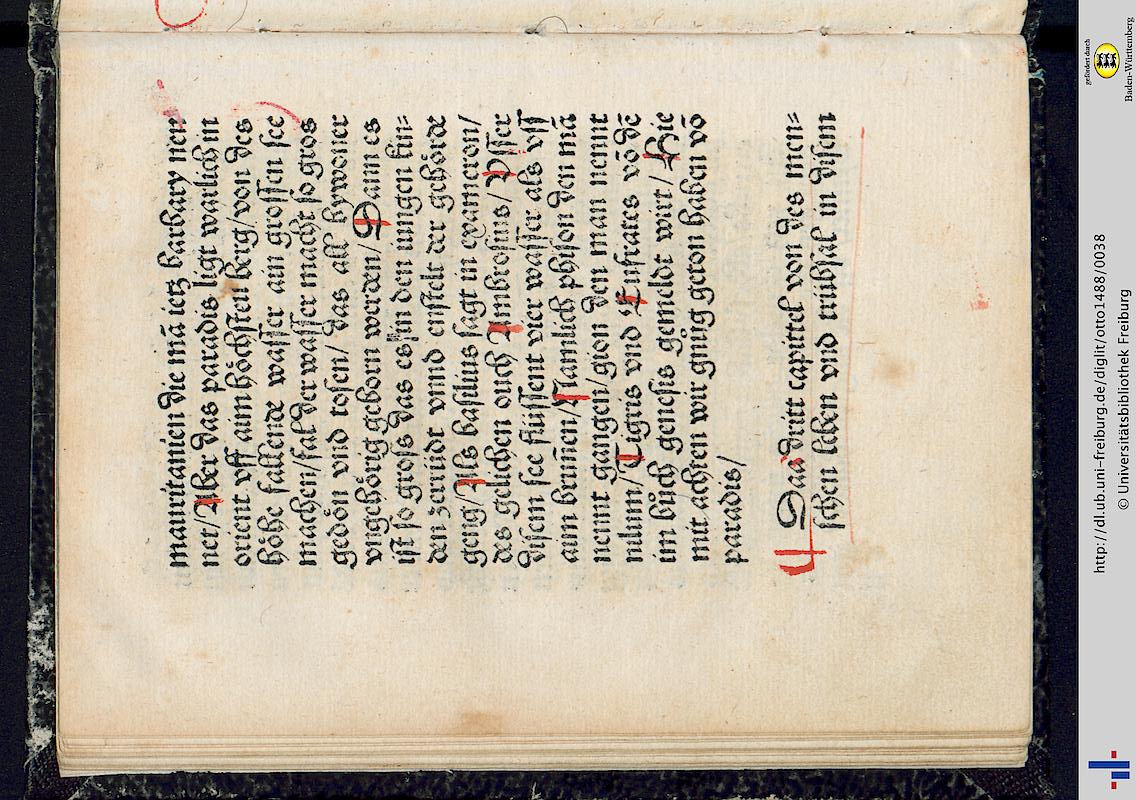 mauritanien die mā ietz barbary nen
net/ Aber das paradis ligt warlich in
orient vff aim höchsten berg/ von des
höhe fallende wasser ain grossen see
machen/ fal der wasser macht so gros
gedön vnd tosen/ das all bywoner
vngehörig geborn werden/ Dann es
ist so gross das es in den iungen kin=
den zerrüdt vnnd enstelt der gehörde
geng/ Als basilius sagt in exameron/
des gelichen ouch Ambrosius/ Vsser
disem see flüssent vier wasser als vss
aim brunnē/ Namlich phison den mā
nennt gangen/ gion den man nennt
nilum/ Tigris vnd Eufrates vō dē
im bůch genesis gemeldt wirt/ Hie
mit achten wir gnůg geton haben vō
paradis/
Das dritt capittel von des men=
schen leben vnd trübsal in disem
http://dl.ub.uni-freiburg.de/diglit/otto1488/0038
© Universitätsbibliothek Freiburg
gefördert durch
Baden-Württemberg